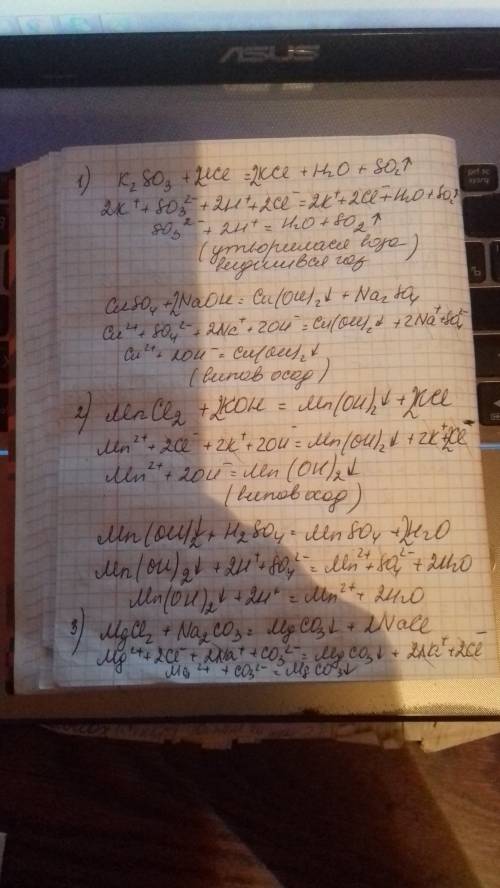 ASUS
1) K₂SO₃ + 2HCl = 2KCl + H₂O + SO₂↑
2K⁺ + SO₃²⁻ + 2H⁺ + 2Cl⁻ = 2K⁺ + 2Cl⁻ + H₂O + SO₂↑
SO₃²⁻ + 2H⁺ = H₂O + SO₂↑
(утворилася вода
виділився газ)
CuSO₄ + 2NaOH = Cu(OH)₂↓ + Na₂SO₄
Cu²⁺ + SO₄²⁻ + 2Na⁺ + 2OH⁻ = Cu(OH)₂↓ + 2Na⁺ + SO₄²⁻
Cu²⁺ + 2OH⁻ = Cu(OH)₂↓
(випав осад)
2) MnCl₂ + 2KOH = Mn(OH)₂↓ + 2KCl
Mn²⁺ + 2Cl⁻ + 2K⁺ + 2OH⁻ = Mn(OH)₂↓ + 2K⁺ + 2Cl⁻
Mn²⁺ + 2OH⁻ = Mn(OH)₂↓
(випав осад)
Mn(OH)₂↓ + H₂SO₄ = MnSO₄ + 2H₂O
Mn(OH)₂↓ + 2H⁺ + SO₄²⁻ = Mn²⁺ + SO₄²⁻ + 2H₂O
Mn(OH)₂↓ + 2H⁺ = Mn²⁺ + 2H₂O
3) MgCl₂ + Na₂CO₃ = MgCO₃↓ + 2NaCl
Mg²⁺ + 2Cl⁻ + 2Na⁺ + CO₃²⁻ = MgCO₃↓ + 2Na⁺ + 2Cl⁻
Mg²⁺ + CO₃²⁻ = MgCO₃↓